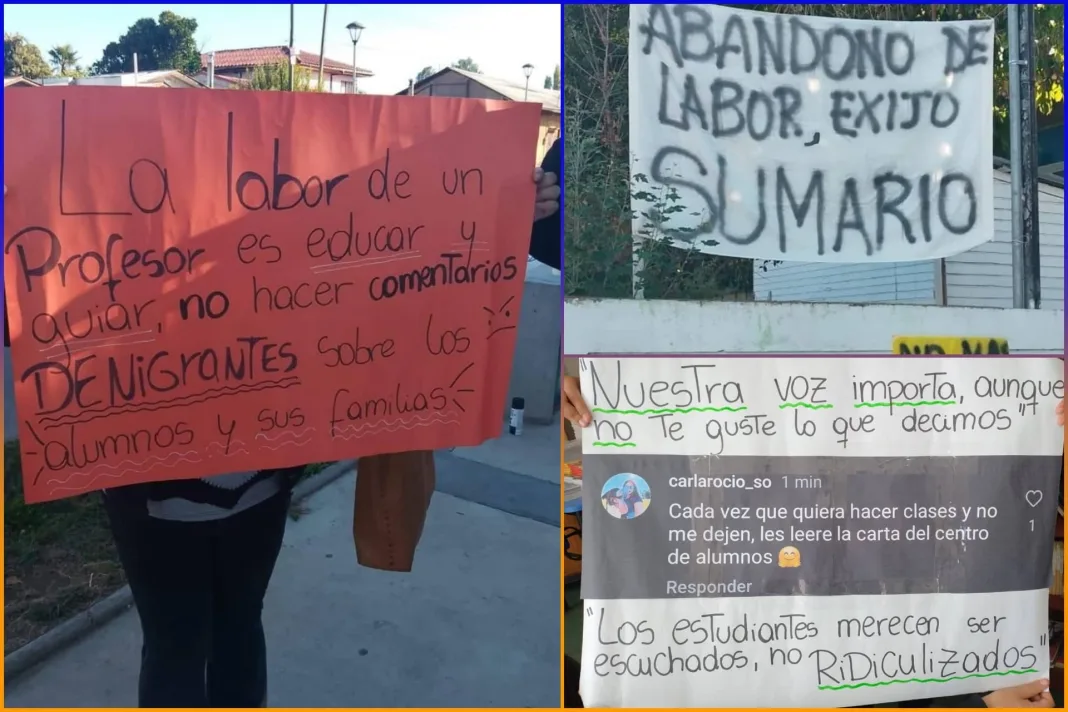 La labor de un
Profesor es educar y
guiar, no hacer comentarios
DENiGRANTES sobre los
alumnos y sus familias
ABANDONO DE
LABOR, EXIJO
SUMARIO
"NUESTRA VOZ importa, aunque
no Te guste lo que decimos"
carlarocio_so 1 min
Cada vez que quiera hacer clases y no
me dejen, les leere la carta del centro
de alumnos 🤗
1
Responder
"Los esTudianTes merecen ser
escuchados, no RiDiculizados"